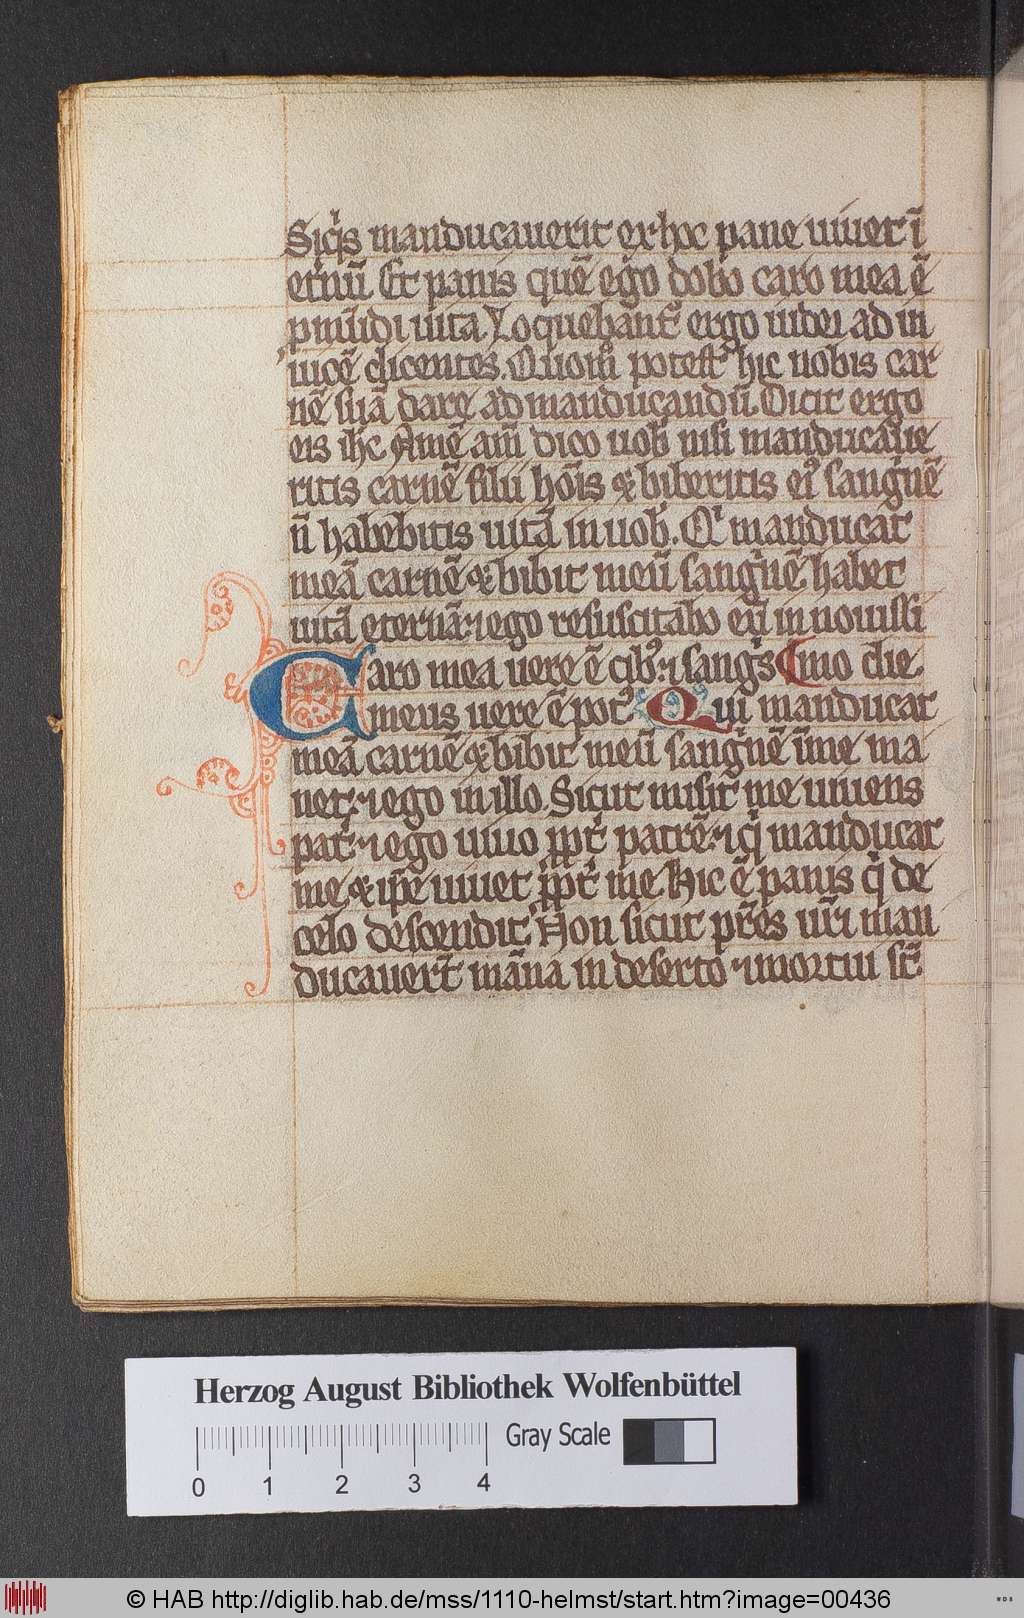 Siq̇s manducauerit ex hoc pane uiuet ī
et̾nū Et panis quē ego dabo caro mea ē
ꝓ mūdi uita Loquebant᷑ ergo iudei ad in
uicē dicentes. Quoⁱ potest hic nobis car
nē suā dare ad manducandū. Dicit ergo
eis ihc Amē am̄ dico uob̾ nisi manducaue
ritis carnē filii hoīs ⁊ biberitis eiꝰ sanguinē
n̄ habebitis uitā in uob̾. Qͥ manducat
meā carnē ⁊ bibit meū sanguinē habet
uitā eternā. ⁊ ego resuscitabo eū in nouissi
Caro mea uere ē cibꝰ. ⁊ sangͥs mo die
meus uere ē potꝰ Qui manducat
meā carnē ⁊ bibit meū sangͥnē ī me ma
net. ⁊ ego in illo. Sicut misit me uiuens
pat̾. ⁊ ego uiuo ꝓpt̾ patrē. ⁊ qͥ manducat
me ⁊ ip̄e uiuet ꝓpt̾ me Hic ē panis qͥ de
celo descendit. Non sicut pr̄es ur̄i man
ducauert̄ māna in deserto ⁊ mortui st̄.
Herzog August Bibliothek Wolfenbüttel
Gray Scale
0 1 2 3 4
© HAB http://diglib.hab.de/mss/1110-helmst/start.htm?image=00436